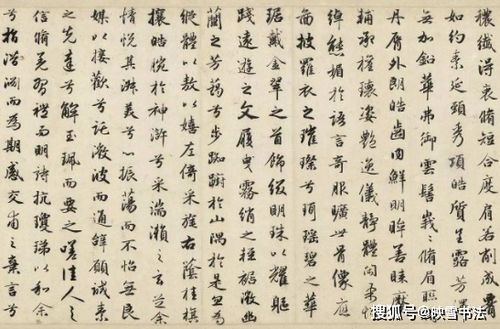 穠纖得衷脩短合度肩若削成腰
如約素延頸秀項皓質呈露芳澤
無加鉛華弗御雲髻峩〻脩眉聯娟
丹脣外朗皓齒內鮮明眸善睞靨
輔承權瓌姿豔逸儀靜體閑柔情
綽態媚於語言奇服曠世骨像應
圖披羅衣之璀璨兮珥瑤碧之華
琚戴金翠之首飾綴明珠以耀軀
踐遠遊之文履曳霧綃之輕裾微幽
蘭之芳藹兮步踟躕於山隅於是忽焉
縱體以遨以嬉左倚采旄右蔭桂旗
攘皓腕於神滸兮采湍瀨之玄芝余
情悅其淑美兮心振蕩而不怡無良
媒以接歡兮託微波而通辭願誠素
之先達兮解玉珮而要之嗟佳人之
信脩羌習禮而明詩抗瓊珶以和余
兮指潛淵而為期感交甫之棄言兮
搜狐号@映雪书法